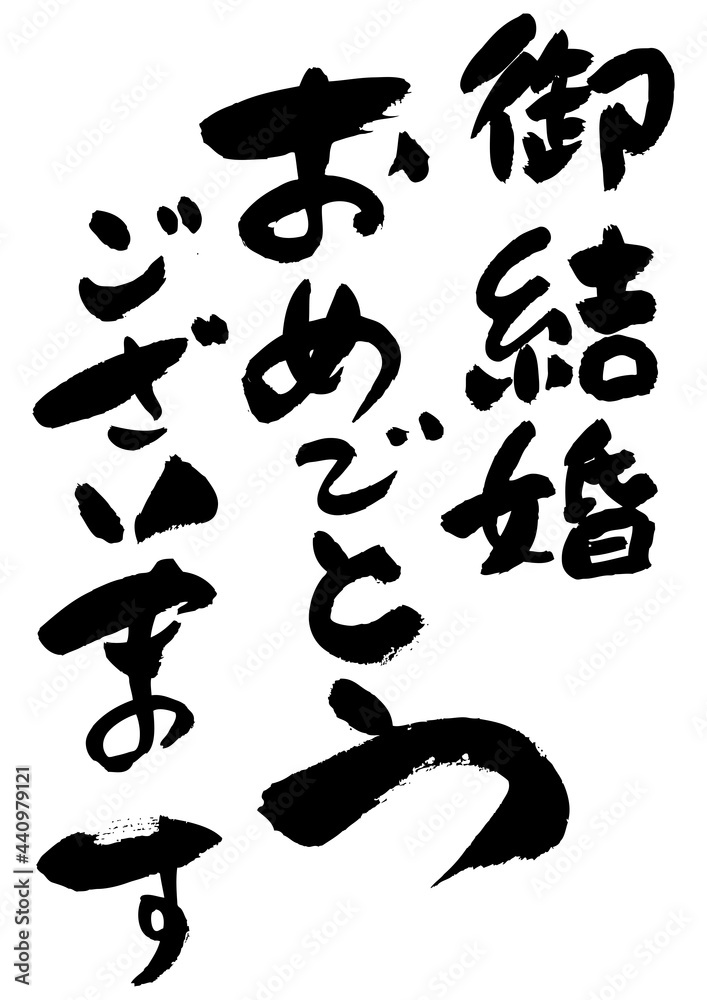 御結婚
おめでとう
ございます
Adobe Stock | #440979121